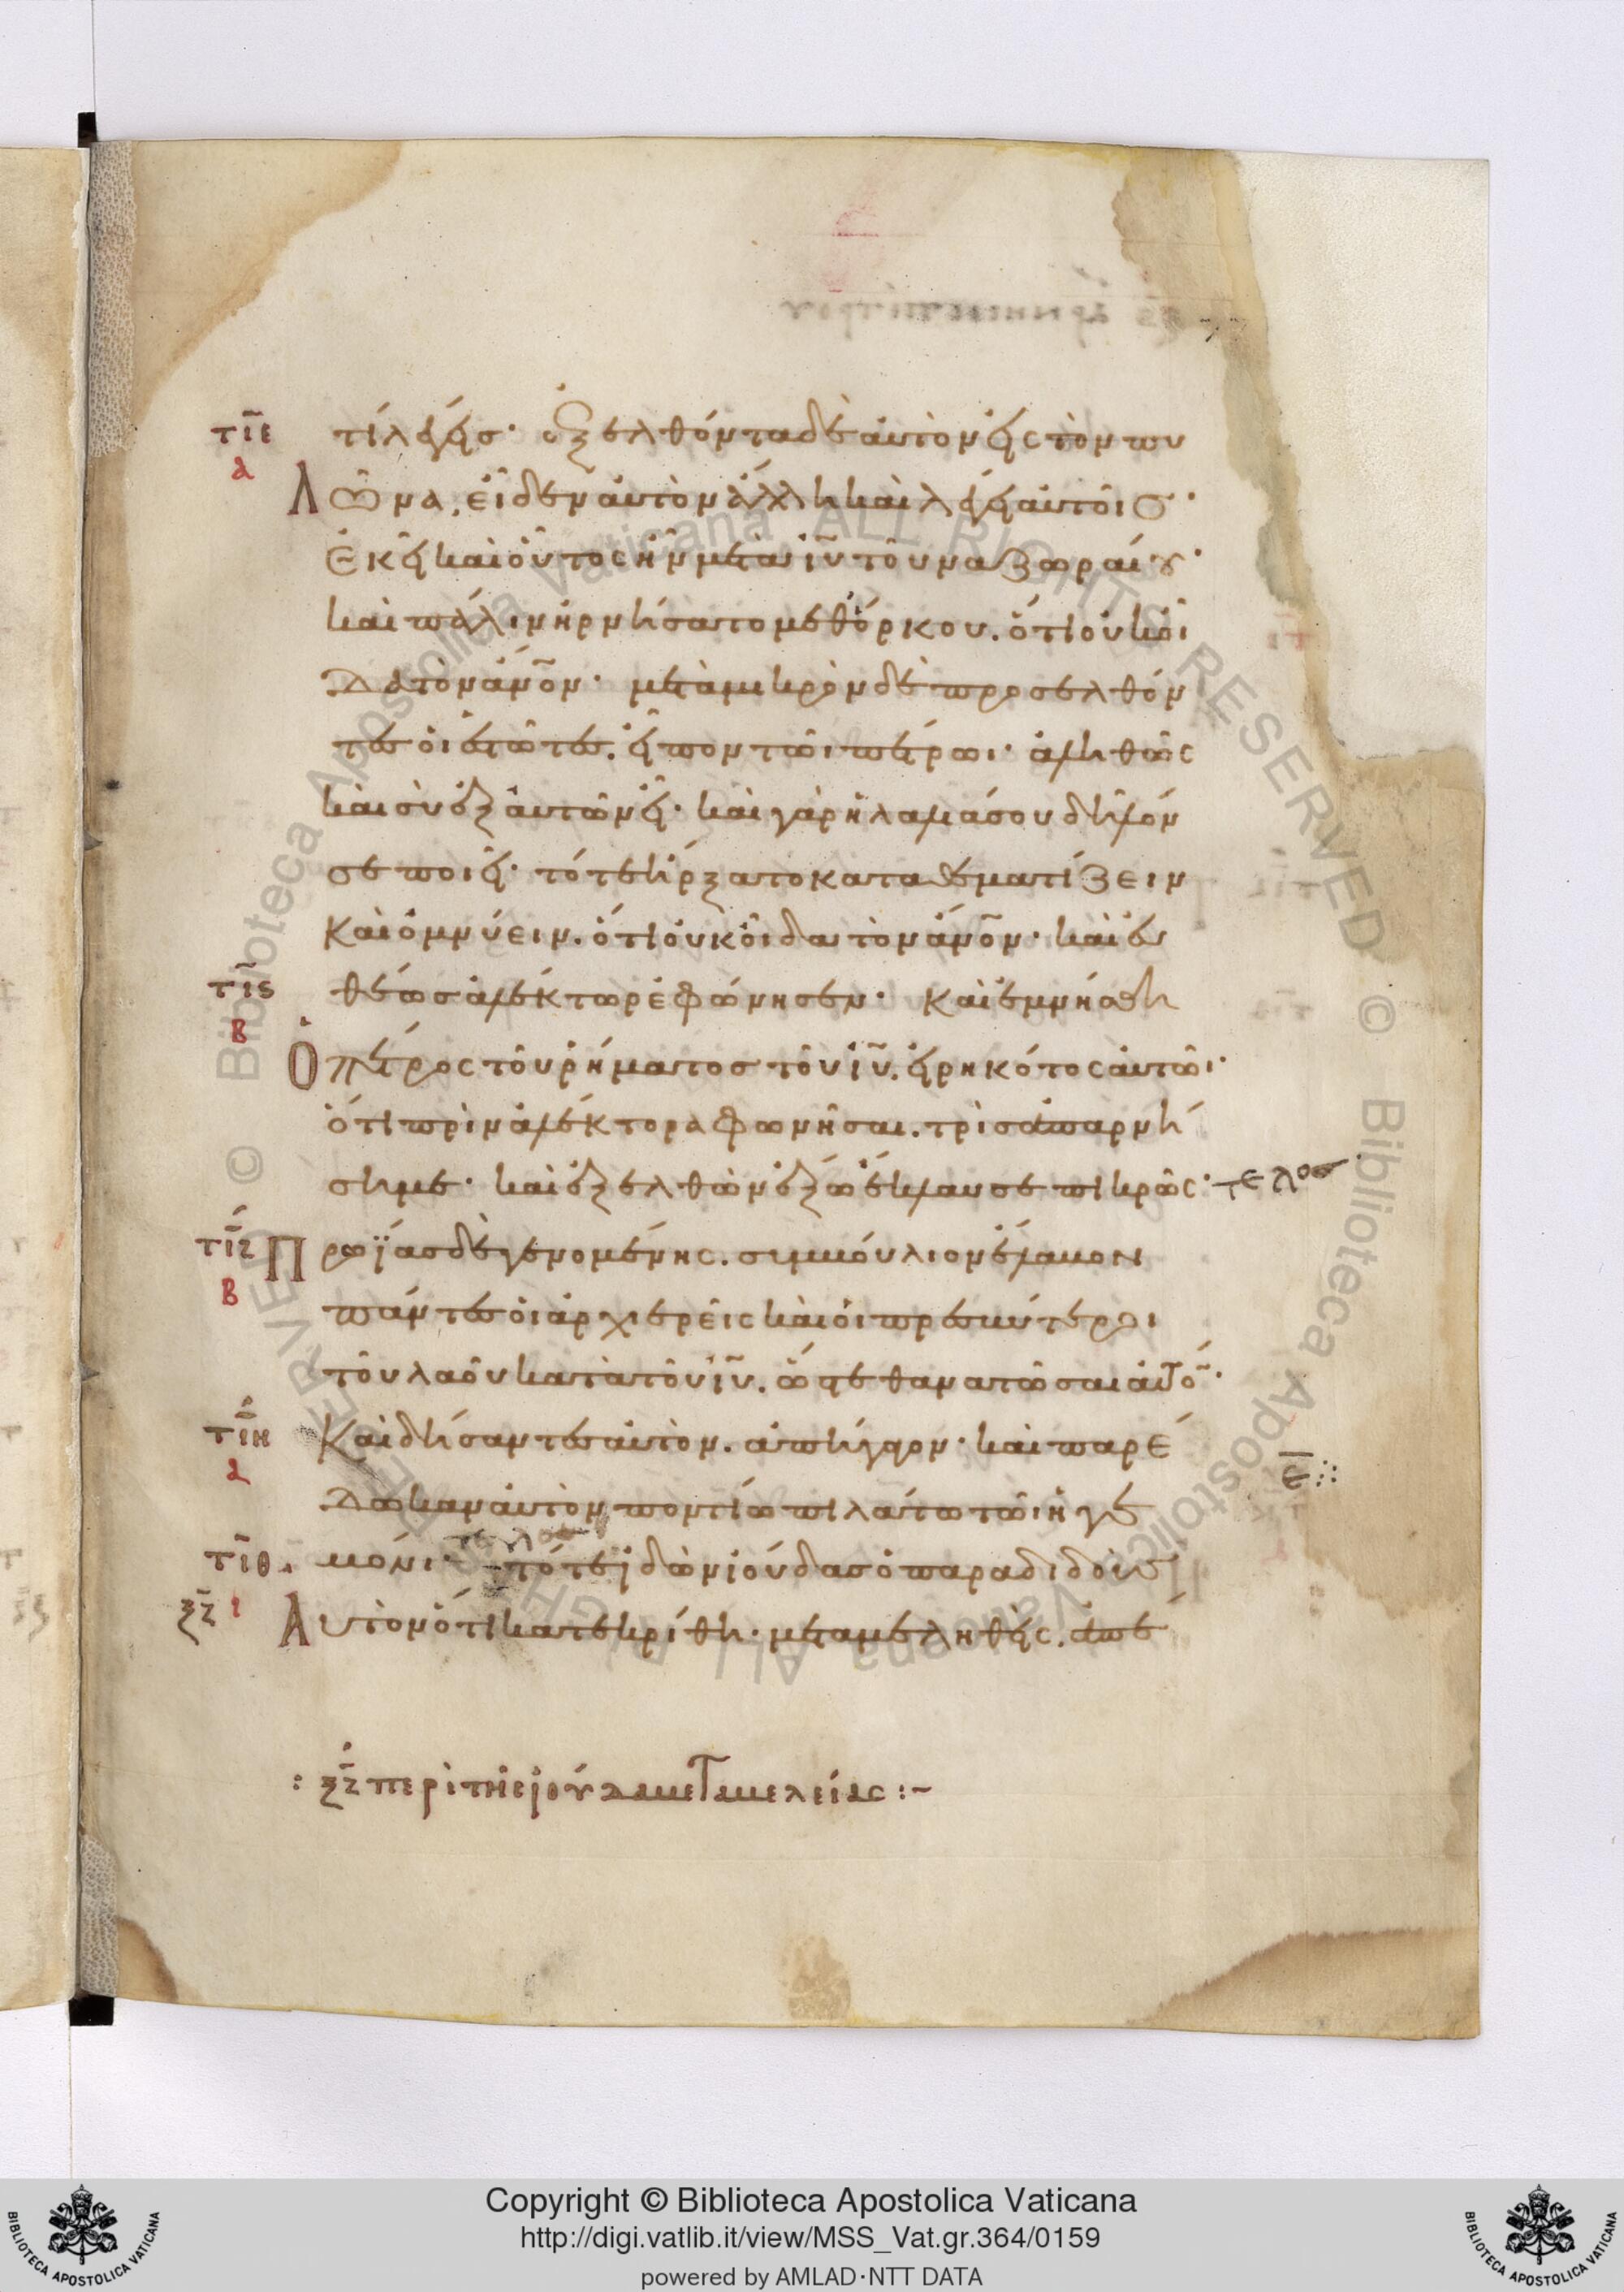 τί λέγεις· ἐξελθόντα δὲ αὐτὸν εἰς τὸν πυ
λῶνα, εἶδεν αὐτὸν ἄλλη καὶ λέγει αὐτοῖς·
ἐκεῖ καὶ οὗτος ἦν μετὰ ἰῦ τοῦ ναζωραίου·
καὶ πάλιν ἠρνήσατο μεθόρκου. ὅτι οὐκ οἶ
δα τὸν ἄνον· μετὰ μικρὸν δὲ προσελθόν
τες οἱ ἑστῶτες. εἶπον τῶι πέτρωι· ἀληθῶς
καὶ σὺ ἐξ αὐτῶν εἶ· καὶ γὰρ ἡ λαλιά σου δῆλόν
σε ποιεῖ· τότε ἤρξατο καταθεματίζειν
καὶ ὀμνύειν. ὅτι οὐκ οἶδα τὸν ἄνον· καὶ εὐ
θέως ἀλέκτωρ ἐφώνησεν· καὶ ἐμνήσθη
ὁ πέτρος τοῦ ῥήματος τοῦ ἰῦ. εἰρηκότος αὐτῶι·
ὅτι πρὶν ἀλέκτορα φωνῆσαι. τρὶς ἀπαρνή
ση με· καὶ ἐξελθὼν ἔξω ἔκλαυσε πικρῶς· τελος
πρωΐας δὲ γενομένης. συμβούλιον ἔλαβον
πάντες οἱ ἀρχιερεῖς καὶ οἱ πρεσβύτεροι
τοῦ λαοῦ κατὰ τοῦ ἰῦ. ὥστε θανατῶσαι αὐτόν·
καὶ δήσαντες αὐτὸν. ἀπήγαγον· καὶ παρέ
δωκαν αὐτὸν ποντίω πιλάτω τῶι ἡγε
μόνι· τελος τότε ἰδὼν ἰούδας ὁ παραδιδοὺς
αὐτὸν ὅτι κατεκρίθη· μεταμεληθεὶς. ἀπέ
: ξζ περὶ τῆς ἰούδα μεταμελείας :~
Copyright © Biblioteca Apostolica Vaticana
http://digi.vatlib.it/view/MSS_Vat.gr.364/0159
powered by AMLAD·NTT DATA
τιε
α
τις
β
τιζ
β
τιη
α
τιθ
ξζ ι
ε
BIBLIOTECA APOSTOLICA VATICANA
BIBLIOTECA APOSTOLICA VATICANA